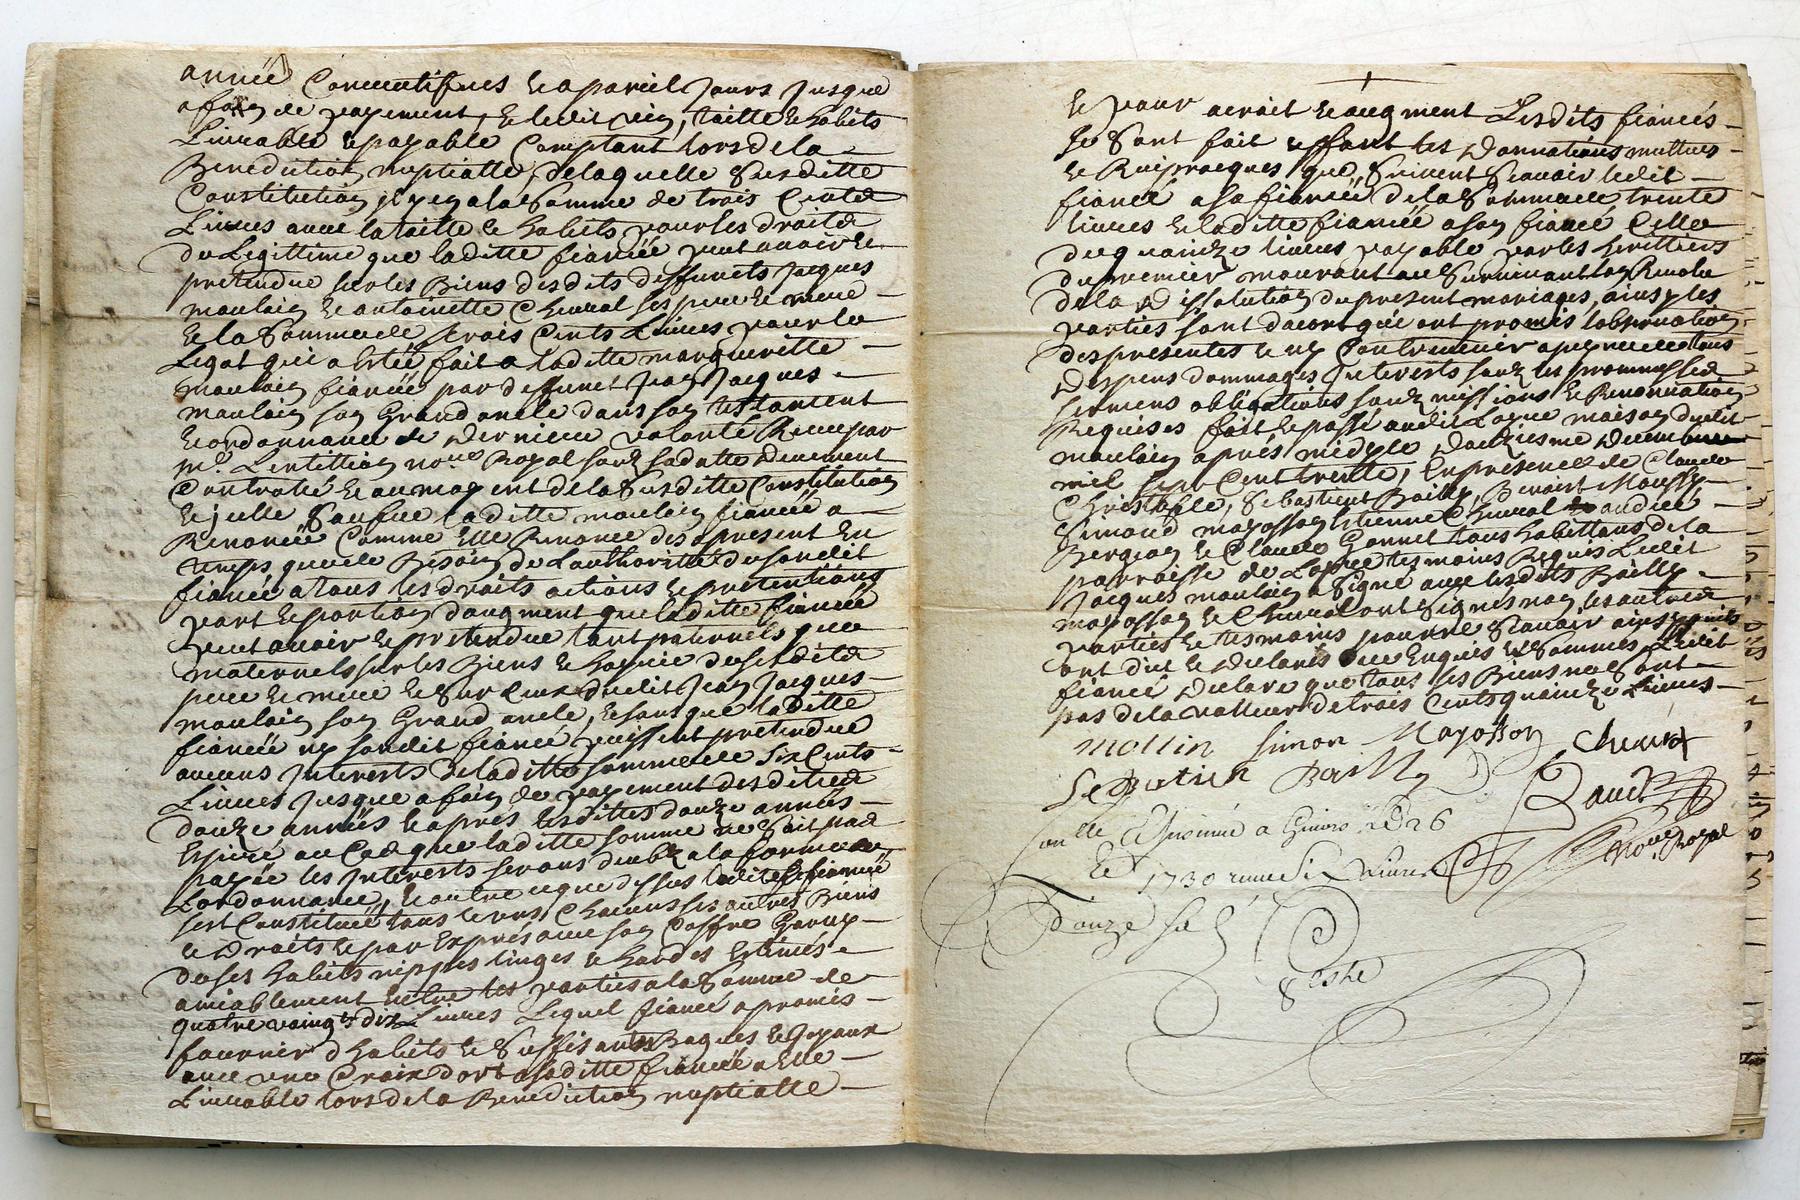 année Consecutifues et a pareil Jours Jusque
a fain de payement, et ledit vin, taille et habits
Liurable et payable Comptant lors de la
Benediction nuptialle, de laquelle Susditte
Constitution il y en a la Somme de trois Cents
Liures auec la taille et habits pour les droits
de Legittime que laditte fiancée peut auoir et
pretendue sur les Biens desdits deffuncts Jacques
moulain et antoinette Cheual ses pere et mere
et la Somme de trois Cents Liures pour le
Legat qui a esté fait a laditte margueritte
moulain fiancée par deffunct Jean Jacques
moulain son Grand oncle dans son testament
et ordonnance de derniere volonté Receu par
me. notre Royal soubz sa datte duement
Controllé et au moyent de la Susditte Constitution
et icelle Saufue laditte moulain fiancée a
Renoncée Comme Elle Renonce des apresent et
temps quelle Besoin de L'authoritté du susdit
fiancé a tous les droits actions et pretentions
part et portion d'augment que laditte fiancée
peut auoir et pretendue tant paternels que
maternels sur les Biens et hoyrie desesdits
pere et mere et Sur Ceux dudit Jean Jacques
moulain son Grand oncle, et sans que laditte
fiancée ny sondit fiancé puissent pretendue
aucuns Interests de laditte somme de Six Cents
Liures Jusque a fain de payement desdittes
douze années et apres lesdittes douze années
Expiré au Cas que laditte somme ne Soit pas
payée les Interests seront deubz a la forme de
L'ordonnance, et outre ce que dessus laditte fiancée
sest Constituée tous et uns Chacuns ses autres Biens
et Droits et par Exprés auec son Coffre Garny
de ses habits nippes linges et hardes Estimés
amiablement Entre les parties a la Somme de
quatre vaingts dix Liures Lequel fiancé a promis
fournir d'habits et Suffisants Bagues et Joyaux
auec une Croix d'or a saditte fiancée a Elle
Liurable lors de la Benediction nuptialle
et pour acroit et augment Lesdits fiancés
Se Sont fait et font les Donnations mutues
et Reciproques que Sensuiuent Scauoir ledit
fiancé a sa fiancée de la Somme de trente
liures et laditte fiancée a son fiancé Celle
de quainze liures payable par les heritiers
du premier mourant au Suruiuant lors
de la Dissolution du present mariages, ainsy les
parties sont dacort qui ont promis lobseruation
des presentes et ny Contreuenir a peyne de tous
Despens dommages Interests soubz les promesses
sermens obligations soubzmissions et Renonnation
Requises fait et passé audit Logue maison dudit
moulain aprés midy le douziesme decembre
mil Sept Cent trente, En presence de Claude
Christofle, Sebastient Bailly, Benoist
Simond mayosson Estienne Cheual andré
Bergeon et Claude Gonnet tous habittans de la
parroisse de tesmoins Requis Ledit
Jacques moulain a Signé auec lesdits Bailly
mayosson et Cheual ont Signés non les autres
parties et tesmoins pour ne Scauoir ainsy quils
ont dict et declarés de ce Enquis et Sommés Ledit
fiancé declare que tous ses Biens ne Sont
pas de la valleur de trois Cents quainze Liures
mollin simon Mayosson Cheual
Sebatien Bailly
a Giuors le 26
1730
notre Royal
douze